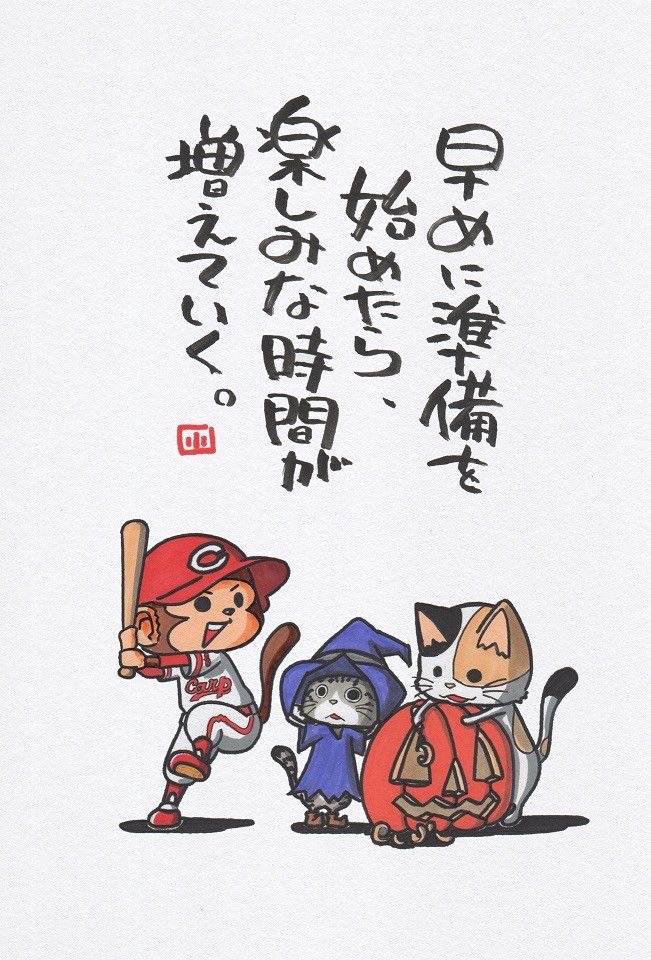 早めに準備を
始めたら、
楽しみな時間が
増えていく。
C
Carp